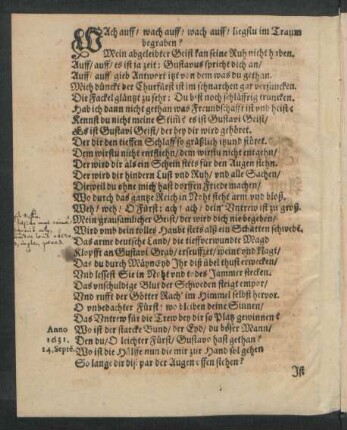 WAch auff/ wach auff/ wach auff/ liegstu im Traum
begraben?
Mein abgeleibter Geist kan seine Ruh nicht haben.
Auff/ auff/ es ist ja zeit; Gustavus spricht dich an/
Auff/ auff gieb Antwort itzt von dem was du gethan.
Mich dünckt der Churfürst ist im schnarchen gar versuncken.
Die Fackel gläntzt zu sehr; Du bist noch schläffrig truncken.
Hab ich dann nicht gethan was Freundschafft ist vnd heist?
Kennst du nicht meine Stim̃? es ist Gustavi Geist/
Es ist Gustavi Geist/ der hey dir wird gehöret.
Der dir den tieffen Schlaff so gräßlich itzund störet.
Dem wirstu nicht entfliehn/ dem wirstu nicht entgehn/
Der wird dir als ein Schein stets für den Augen stehn.
Der wird dir hindern Lust vnd Ruh/ vnd alle Sachen/
Dieweil du ohne mich hast dorffen Friede machen/
Wo durch das gantze Reich in Noht steht arm vnd bloß.
Weh/ weh/ O Fürst: ach/ ach/ dein' Vntrew ist zu groß.
Mein grausamlicher Geist/ der wird dich nie begeben/
Wird vmb dein tolles Haupt stets als ein Schatten schwebẽ.
Das arme deutsche Land/ die tieffverwundte Magd
Klopfft an Gustavi Grab/ erseufftzt/ weint vnd klagt/
Das du durch Mäyneyd Ihr diß übel thust erwecken/
Vnd lessest Sie in Noht vnd todes Jammer stecken.
Das vnschuldige Blut der Schweden steigt empor/
Vnd rufft der Götter Rach' im Himmel selbst hervor.
O vnbedachter Fürst: wo bleiben deine Sinnen/
Das Vntrew für die Trew bey dir so Platz gewinnen?
Anno Wo ist der starcke Bund/ der Eyd/ du böser Mann/
1631. Den du/ O leichter Fürst/ Gustavo hast gethan?
14. Septẽ. Wo ist die Hülffe nun die mir zur Hand sol gehen
So lange dir diß par der Augen offen stehen?
Ist